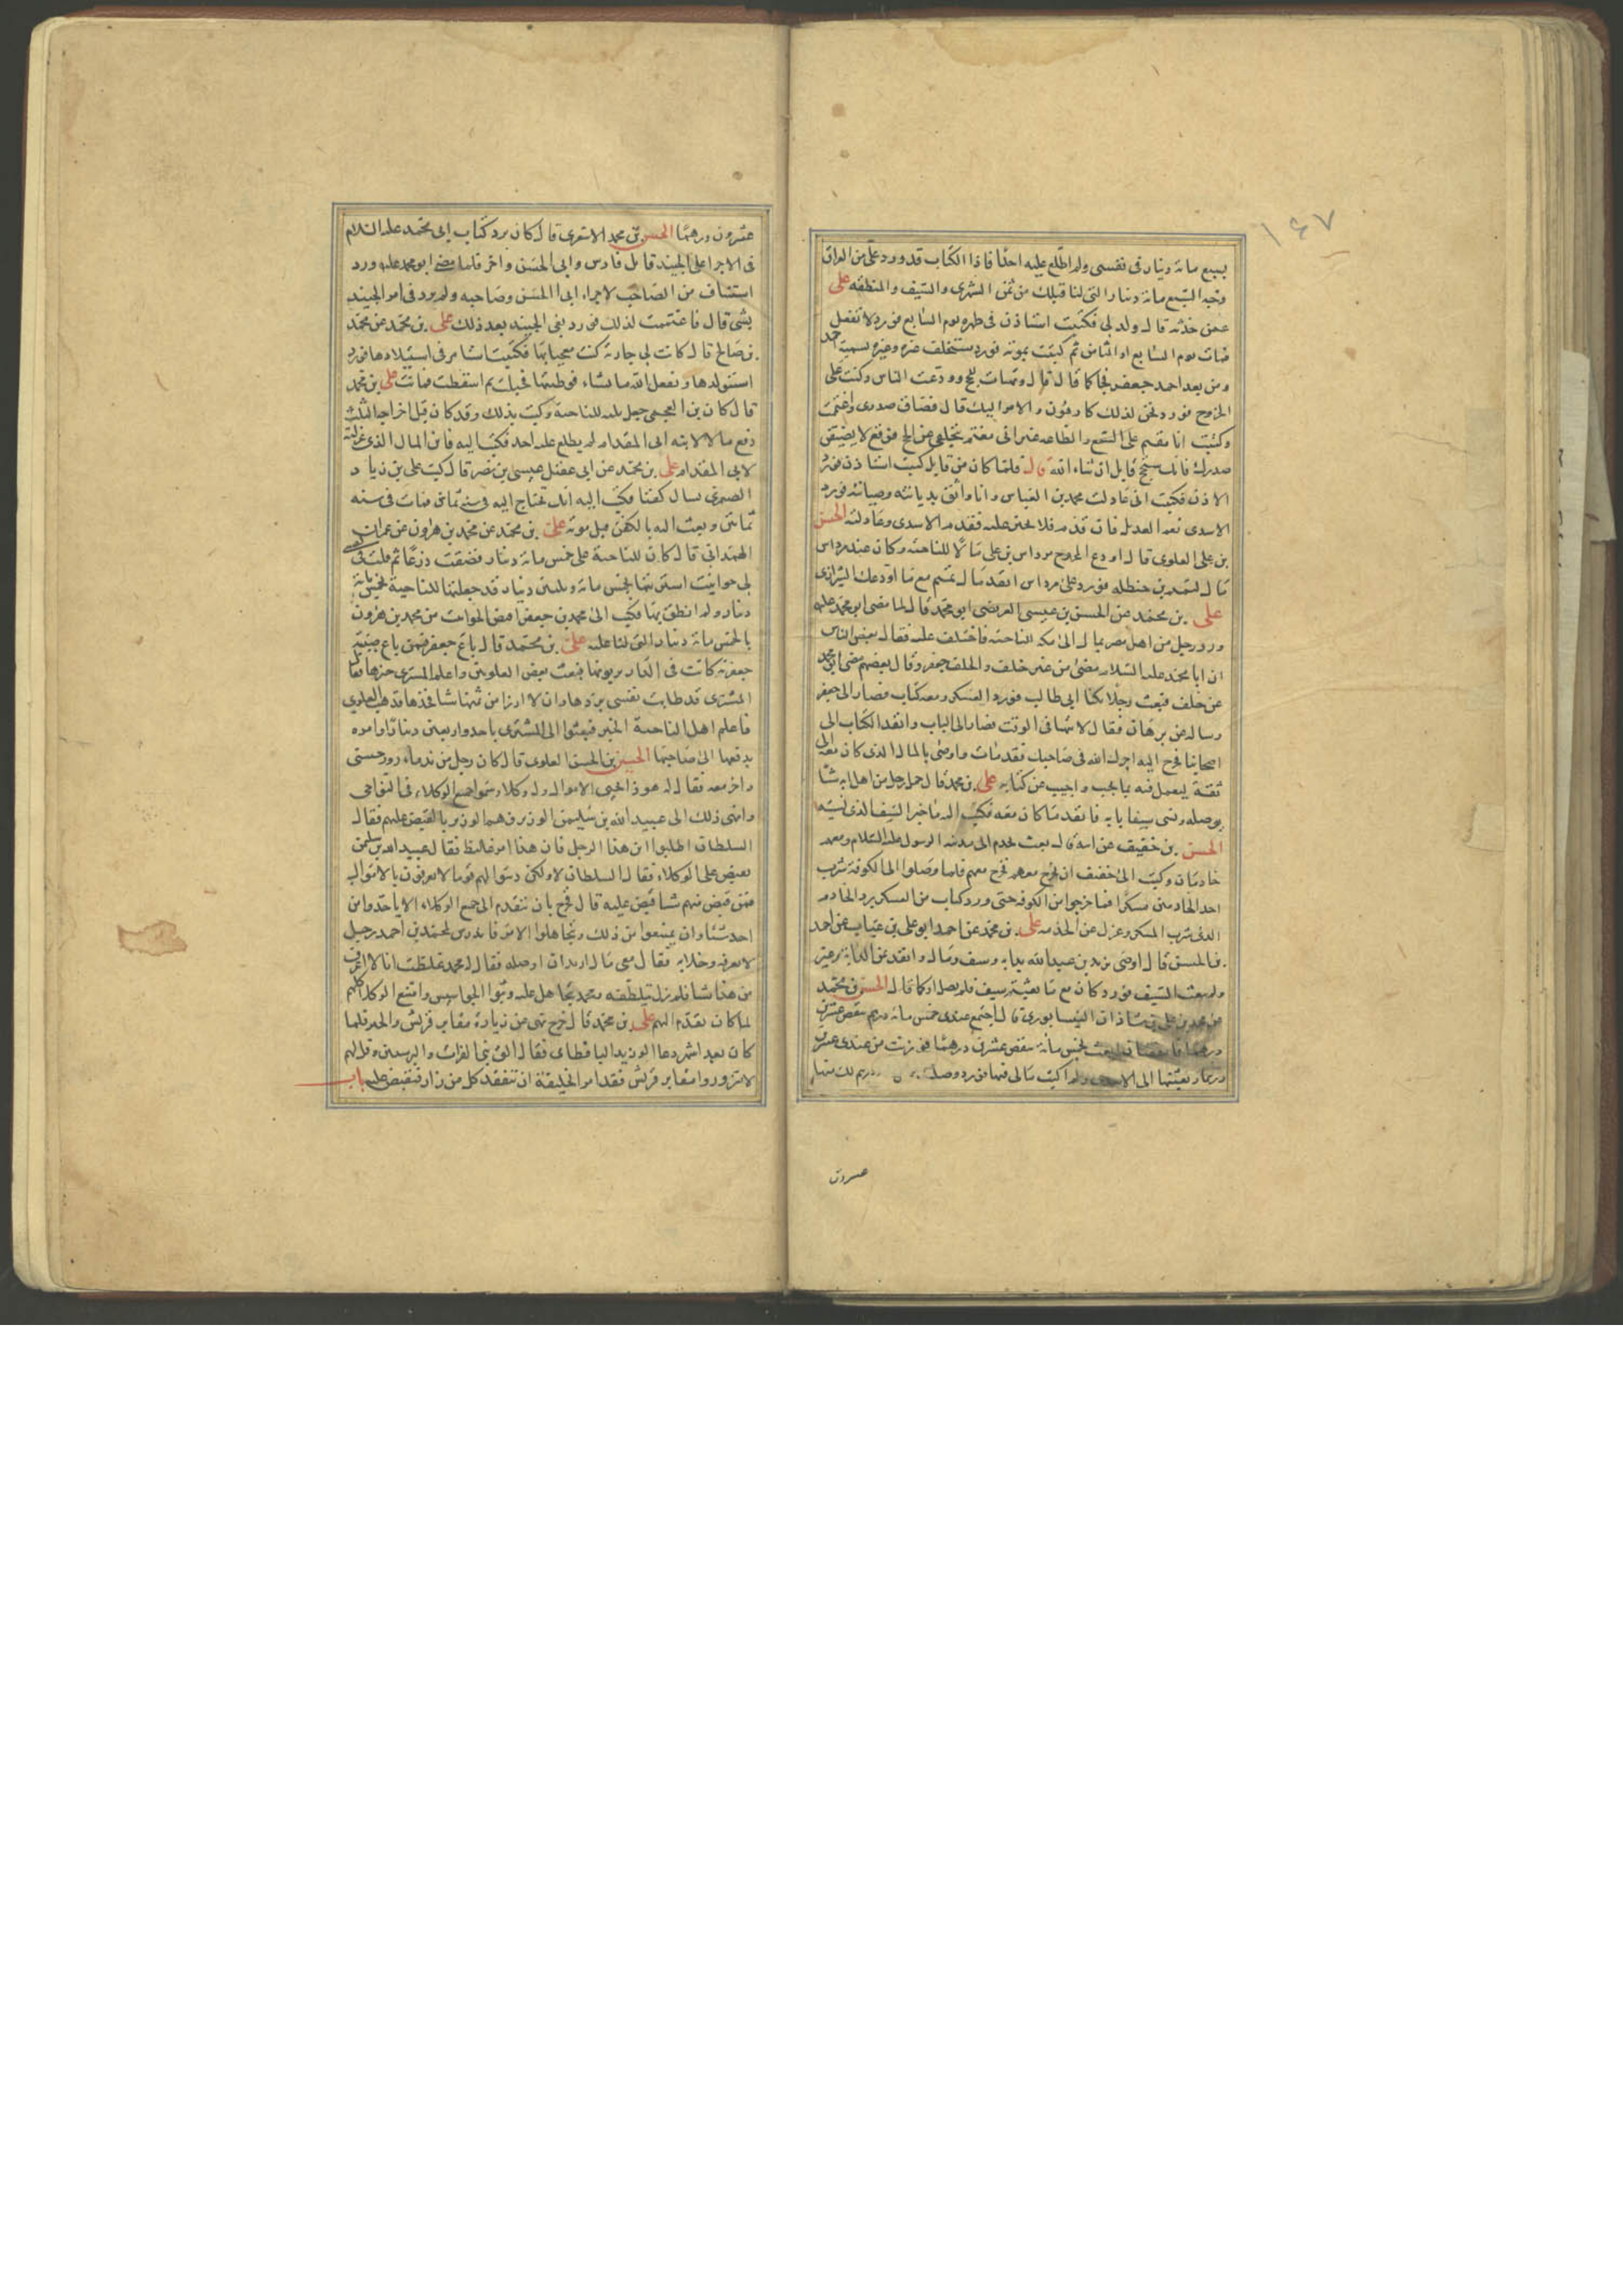 ١٤٧
بسبع مائة دينار في نفسي ولم اطلع عليه احدا فاذا الكتاب قد ورد على من العراق
وجه السبع مائة دينار التي لنا قبلك من ثمن الشهرى والسيف والمنطقه على
عمن حدثه قال ولد لي فكتبت استاذن في طهره يوم السابع فورد لا تفعل
فمات يوم السابع او الثامن ثم كتبت بموته فورد ستخلف غيره وغيره تسميه احمد
ومن بعد احمد جعفر فجا كما قال قال وتهيات للحج وودعت الناس وكنت على
الخروج فورد نحن لذلك كارهون والامر اليك قال فضاق صدري واغتممت
وكتبت انا مقيم على السمع والطاعه غير اني مغتم بتخلفي عن الحج فوقع لا يضيقن
صدرك فانك ستحج قابل ان شاء الله قال فلما كان من قابل كتبت استاذن فورد
الاذن فكتبت اني عادلت محمد بن العباس وانا واثق بديانته وصيانته فورد
الاسدي نعم العديل فان قدم فلا تختر عليه فقدم الاسدي وعادلته الحسن
بن علي العلوي قال اودع المجروح مرداس بن علي مالا للناحيه وكان عند مرداس
مال لتميم بن حنظله فورد على مرداس انفذ مال تميم مع ما اودعك الشيرازي
على بن محمد عن الحسن بن عيسى العريضي ابو محمد قال لما مضى ابو محمد عليه
ورد رجل من اهل مصر بمال الى مكه للناحيه فاختلف عليه فقال بعض الناس
ان ابا محمد عليه السلام مضى من غير خلف والخلف جعفر وقال بعضهم مضى ابو محمد
عن خلف فبعث رجلا يكنا ابي طالب فورد العسكر ومعه كتاب فصار الى جعفر
وساله عن برهان فقال لا يتهيا في الوقت فصار الى الباب وانفذ الكتاب الى
اصحابنا فخرج اليه اجرك الله في صاحبك فقد مات واوصى بالمال الذى كان معه الى
ثقة ليعمل فيه بما يجب واجيب عن كتابه على بن محمد قال حمل رجل من اهل ابه شيا
يوصله ونسي سيفا بابه فانفذ ما كان معه فكتب اليه ما خبر السيف الذى نسيته
الحسن بن خفيف عن ابيه قال بعث بخدم الى مدينه الرسول عليه السلام ومعهم
خادمان وكتب الى خفيف ان يخرج معهم فخرج معهم فلما وصلوا الى الكوفة شرب
احد الخادمين مسكرا فما خرجوا من الكوفه حتى ورد كتاب من العسكر برد الخادم
الذى شرب المسكر وعزل عن الخدمه على بن محمد عن احمد ابو على بن غياث عن احمد
بن الحسن قال اوصى يزيد بن عبد الله بدابه وسيف ومال وانفذ ثمن الدابة وغير
ولم يبعث السيف فورد كان مع ما بعثتم سيف فلم يصل او كما قال الحسن بن محمد
عن محمد بن علي بن شاذان النيسابوري قال اجتمع عندى خمس مائة درهم تنقص عشرين
درهما فانفت ان ابعث بخمس مائة تنقص عشرين درهما فوزنت من عندى عشرين
درهما وبعثتها الى الاسدى ولم اكتب مالي فيها فورد وصلت درهم لك منها
عسرون
عشرون درهما الحسن بن محمد الاشعرى قال كان يرد كتاب ابى محمد عليه السلام
فى الاجرا على الجنيد قاتل فارس وابى الحسن واخر فلما مضى ابو محمد عليه ورد
استيناف من الصاحب لاجراء ابى الحسن وصاحبه ولم يرد فى امر الجنيد
بشي قال فاغتممت لذلك فورد نعى الجنيد بعد ذلك على بن محمد عن محمد
بن صالح قال كانت لى جارية كنت معجبا بها فكتبت استامر في استيلادها فورد
استولدها ويفعل الله ما يشاء فوطئتها فحبلت ثم اسقطت فماتت على بن محمد
قال كان بن العجمى جعل ثلثه للناحيه وكتب بذلك وقد كان قبل اخراجه الثلث
دفع مالا لابنه ابى المقدام لم يطلع عليه احد فكتب اليه فان المال الذى عزلته
لابى المقدام على بن محمد عن ابى عقيل عيسى بن نصر قال كتب على بن زياد
الصيمرى يسال كفنا فكتب اليه انك تحتاج اليه في سنه ثمانين فمات فى سنه
ثمانين وبعث اليه بالكفن قبل موته على بن محمد عن محمد بن هارون عن عمران
الهمدانى قال كان للناحية على خمس مائة دينار فضقت ذرعا ثم قلت فى نفسى
لى حوانيت اشتريتها بخمس مائة وثلثين دينار قد جعلتها للناحية بخمس مائة
دينار ولم انطق بها فكتب الى محمد بن جعفر اقبض الحوانيت من محمد بن هرون
بالخمس مائة دينار التى لنا عليه على بن محمد قال باع جعفر فيمن باع صبية
جعفرية كانت في الدار يربونها فبعث بعض العلويين واعلم المشترى خبرها فقال
المشترى قد طابت نفسى بردها وان لا ارزا من ثمنها شيا فخذها فذهب العلوي
فاعلم اهل الناحية الخبر فبعثوا الى المشترى باحد واربعين دينارا وامره
بدفعها الى صاحبها الحسين بن الحسن العلوى قال كان رجل من ندماء روز حسنى
واخر معه فقال له هو ذا يجبى الاموال وله وكلا وسموا جميع الوكلاء فى النواحى
وانهى ذلك الى عبيد الله بن سليمن الوزير فهم الوزير بالقبض عليهم فقال
السلطان اطلبوا اين هذا الرجل فان هذا امر غليظ فقال عبيد الله بن سليمن
نقبض على الوكلاء فقال السلطان لا ولكن دسوا لهم قوما لا يعرفون بالاموال
فمن قبض منهم شيا قبض عليه قال فخرج بان يتقدم الى جميع الوكلاء الا ياخذوا من
احد شيئا وان يمتنعوا من ذلك ويتجاهلوا الامر فاندس لمحمد بن احمد رجل
لا يعرفه وخلا به فقال معى مال اريد ان اوصله فقال له محمد غلطت انا لا اعرف
من هذا شيا فلم يزل يتلطفه ومحمد يتجاهل عليه وبثوا الجواسيس وامتنع الوكلا كلهم
لما كان تقدم اليهم على بن محمد قال خرج نهى عن زيارة مقابر قريش والحير فلما
كان بعد اشهر دعا الوزير الباقطاى فقال الق بنى الفرات والبرسيين وقل لهم
لا تزوروا مقابر قريش فقد امر الخليفة ان يتفقد كل من زار فيقبض عليه باب